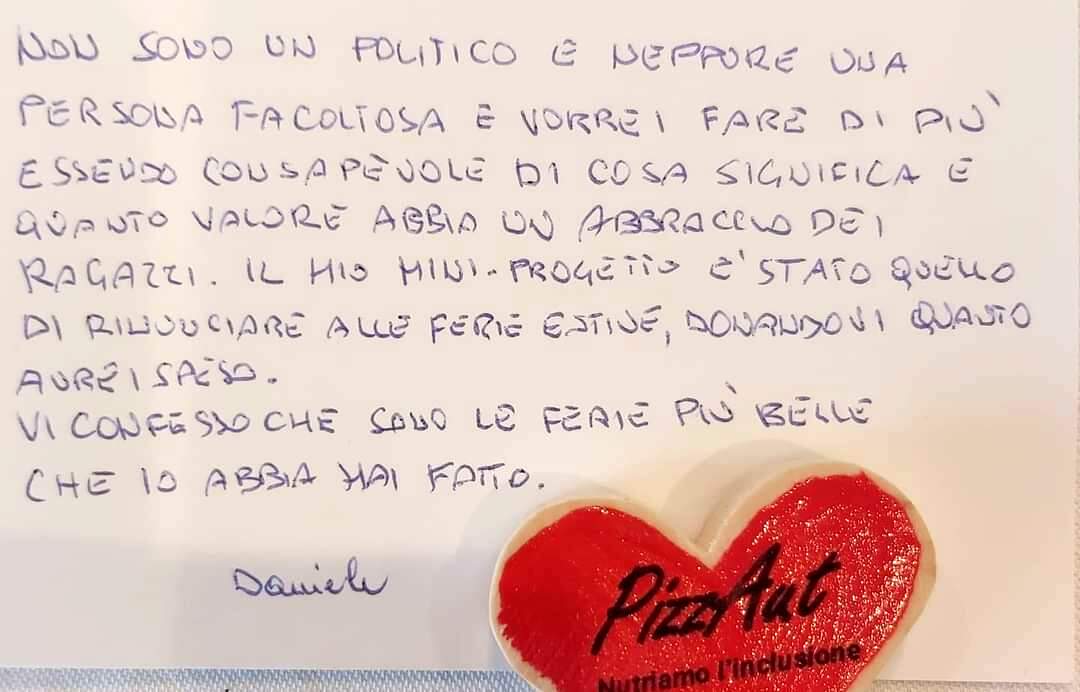 NON SONO UN POLITICO E NEPPURE UNA
PERSONA FACOLTOSA E VORREI FARE DI PIÙ
ESSENDO CONSAPÈVOLE DI COSA SIGNIFICA E
QUANTO VALORE ABBIA UN ABBRACCIO DEI
RAGAZZI. IL MIO MINI-PROGETTO E' STATO QUELLO
DI RINUNCIARE ALLE FERIE ESTIVE, DONANDOVI QUANTO
AVREI SPESO.
VI CONFESSO CHE SONO LE FERIE PIÙ BELLE
CHE IO ABBIA MAI FATTO.
Daniele
PizzAut
Nutriamo l'inclusione